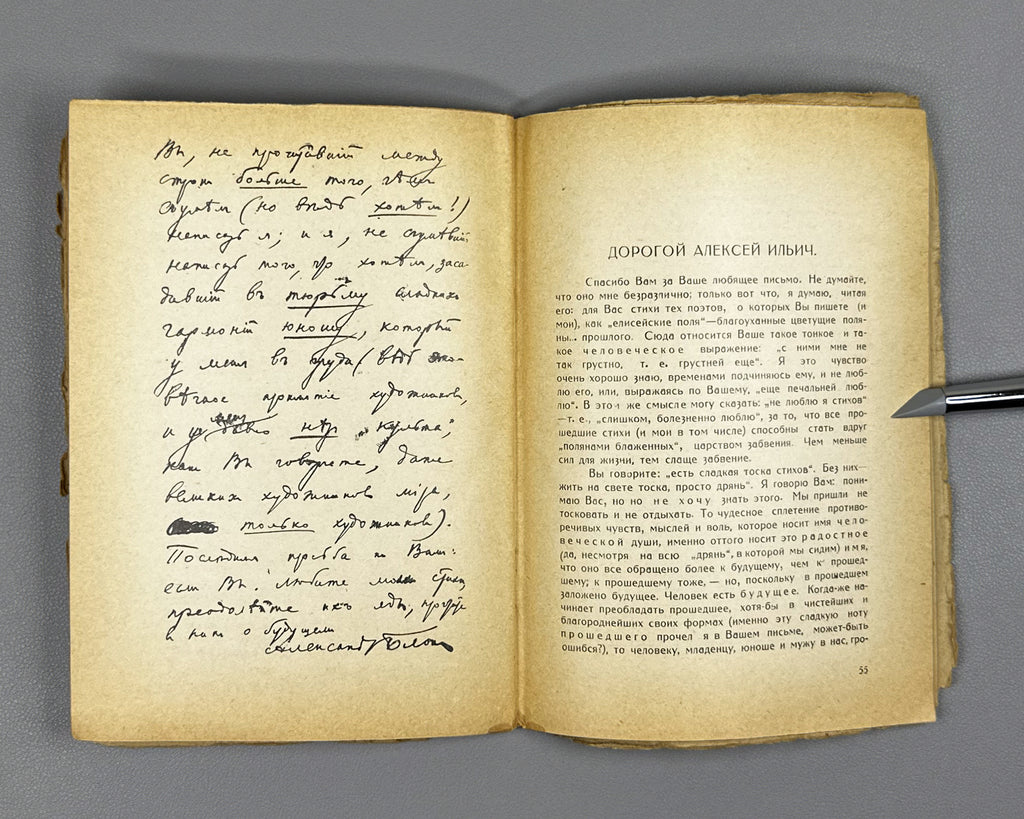 Вы, не прочитавшiй между
строк больше того, чѣмъ
сумѣл (но вѣдь хотѣл!)
написать я; и я, не сумѣвшiй
написать того, что хотѣл, заса-
дившiй въ тюрьму сладкихъ
гармонiй юношу, который
у меня въ груди (вѣдь
вѣчное проклятiе художников,
и у нѣт культа",
как Вы говорите, даже
великих художников мiра,
только художников).
Последняя просьба к Вам:
если Вы любите мои стихи,
преодолѣйте их яды, прочтите
в них о будущем
Александр Блок
ДОРОГОЙ АЛЕКСЕЙ ИЛЬИЧ.
Спасибо Вам за Ваше любящее письмо. Не думайте,
что оно мне безразлично; только вот что, я думаю, читая
его: для Вас стихи тех поэтов, о которых Вы пишете (и
мои), как „елисейские поля“—благоуханные цветущие поля-
ны... прошлого. Сюда относится Ваше такое тонкое и та-
кое человеческое выражение: „с ними мне не
так грустно, т. е. грустней еще“. Я это чувство
очень хорошо знаю, временами подчиняюсь ему, и не люб-
лю его, или, выражаясь по Вашему, „еще печальней люб-
лю“. В этом же смысле могу сказать: „не люблю я стихов“
—т. е., „слишком, болезненно люблю“, за то, что все про-
шедшие стихи (и мои в том числе) способны стать вдруг
„полянами блаженных“, царством забвения. Чем меньше
сил для жизни, тем слаще забвение.
Вы говорите: „есть сладкая тоска стихов“. Без них—
жить на свете тоска, просто дрянь“. Я говорю Вам: пони-
маю Вас, но но не хочу знать этого. Мы пришли не
тосковать и не отдыхать. То чудесное сплетение противо-
речивых чувств, мыслей и воль, которое носит имя чело-
веческой души, именно оттого носит это радостное
(да, несмотря на всю „дрянь“, в которой мы сидим) имя,
что оно все обращено более к будущему, чем к прошед-
шему; к прошедшему тоже, — но, поскольку в прошедшем
заложено будущее. Человек есть будущее. Когда-же на-
чинает преобладать прошедшее, хотя-бы в чистейших и
благороднейших своих формах (именно эту сладкую ноту
прошедшего прочел я в Вашем письме, может-быть
ошибся?), то человеку, младенцу, юноше и мужу в нас, гро-
55